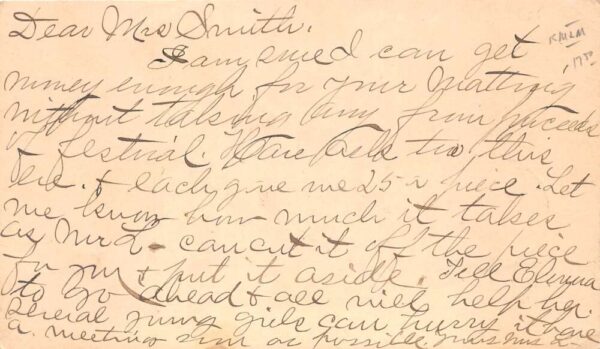 Dear Mrs Smith.
I am sure I can get
money enough for your matting
without taking any from proceeds
of festival. Have asked two this
eve. & each gave me 25 a piece. Let
me know how much it takes.
as Mr L- can cut it off the piece
for you & put it aside. Tell
to go ahead & all will help her.
Several young girls can hurry it have
a meeting soon as possible. Mrs